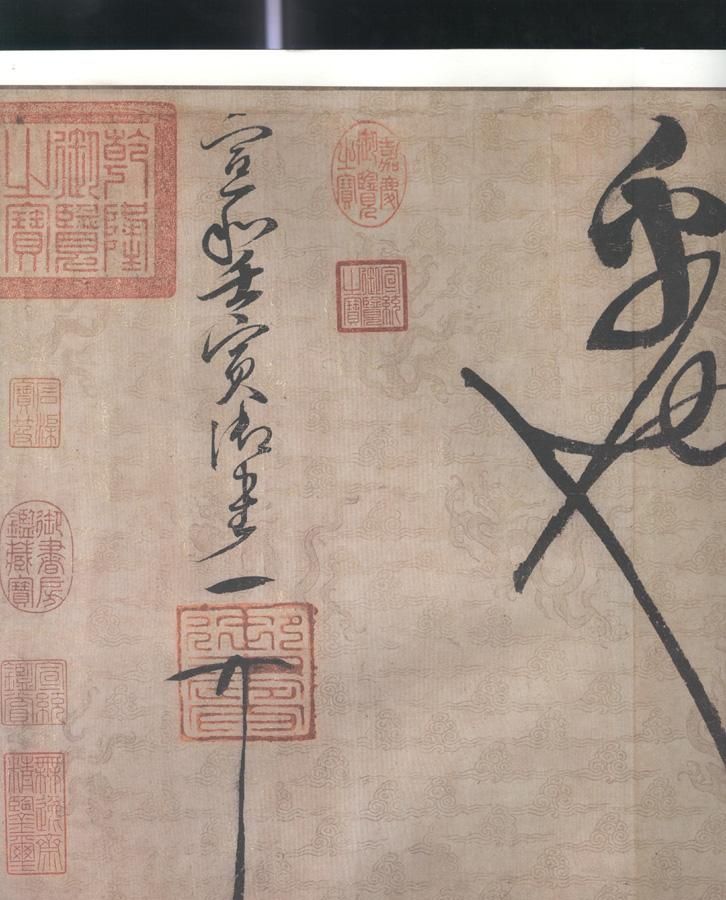 乎也
嘉慶御覽之寶
宣統御覽之寶
宣和壬寅御書
御書
乾隆御覽之寶
石渠寶笈
御書房鑑藏寶
宣統鑑賞
無逸齋精鑒璽